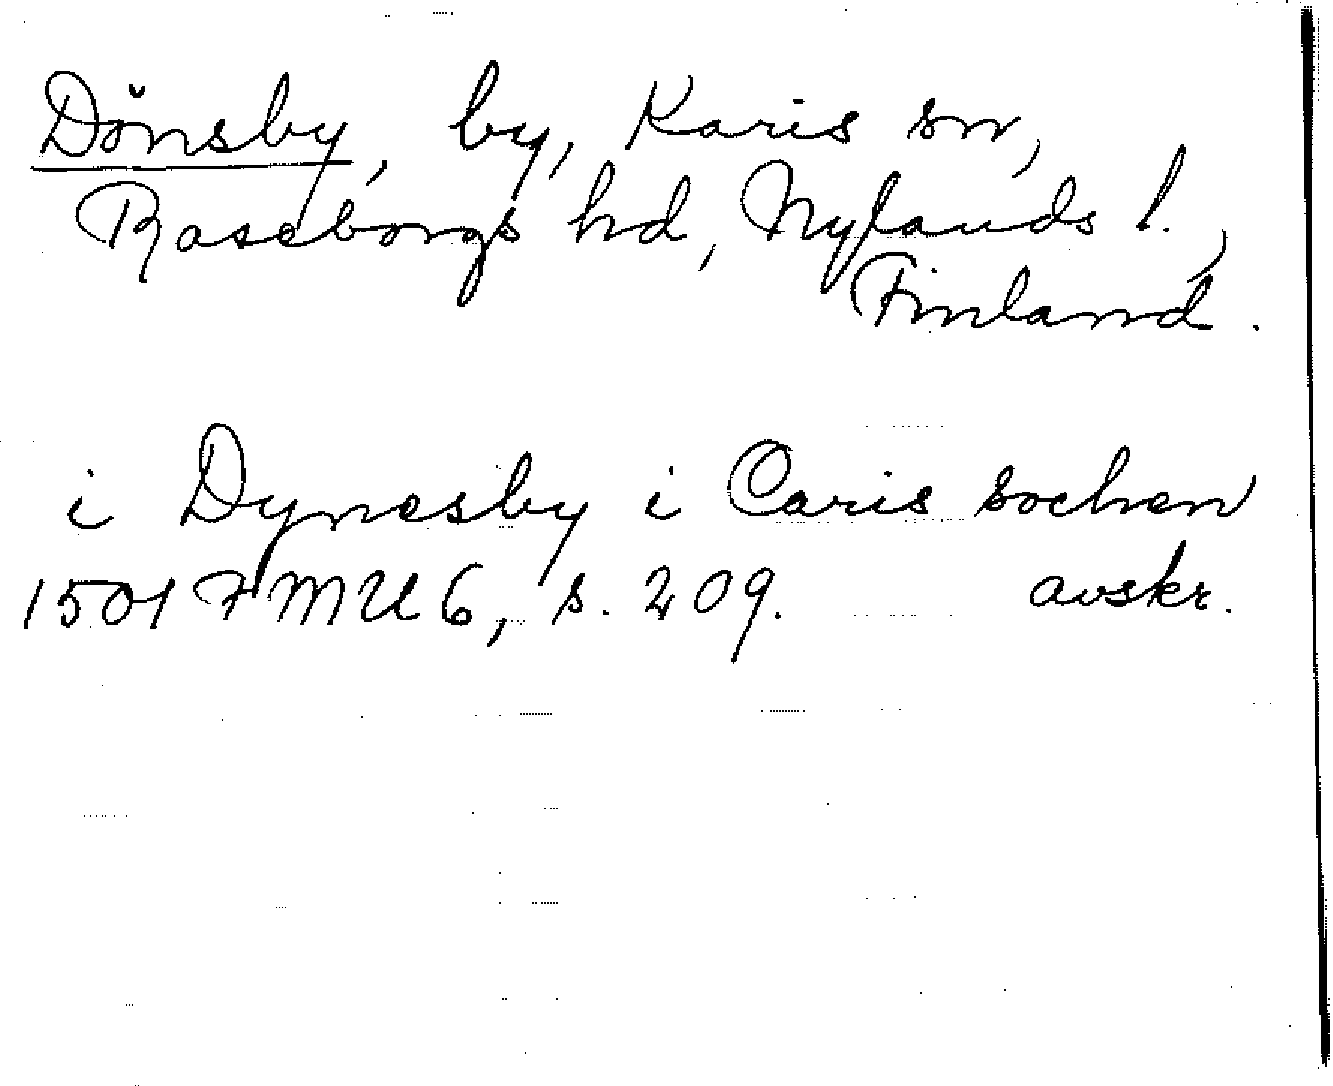 Dönsby, by, Karis sn,
Raseborgs hd, Nylands l.,
Finland.
i Dynesby i Caris sochen
1501 FMU 6, s. 209. avskr.